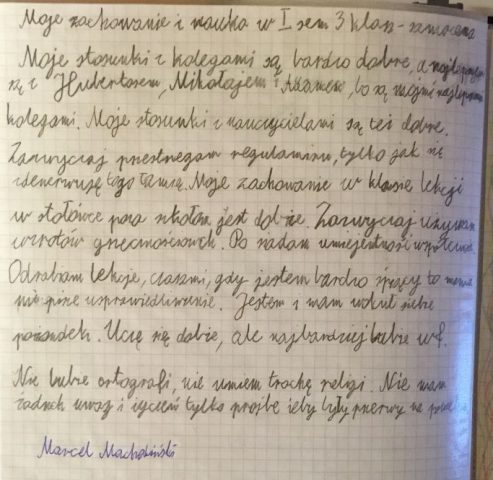 Moje zachowanie i nauka w I sem 3 klasy - samoocena
Moje stosunki z kolegami są bardzo dobre, a najlepsze
są z Hubertosem, Mikołajem i Adamem, bo są moimi najlepszymi
kolegami. Moje stosunki z nauczycielami są też dobre.
Zazwyczaj przestrzegam regulaminu, tylko jak się
zdenerwuję to go łamię. Moje zachowanie w klasie lekcji
w stołówce poza szkołom jest dobże. Zazwyczaj używam
zwrotów grzecznościowych. Po siadam umiejętność
Odrabiam lekcje, czasmi, gdy jestem bardzo śpiący to mama
pisze usprawiedliwanie. Jestem i mam wokuł siebie
pożondek. Uczę się dobże, ale najbardziej lubie wf.
Nie lubie ortografi, nie umiem trochę religi. Nie mam
żadnch uwag i życzeń tylko projbe żeby były przerwy na
Marcel